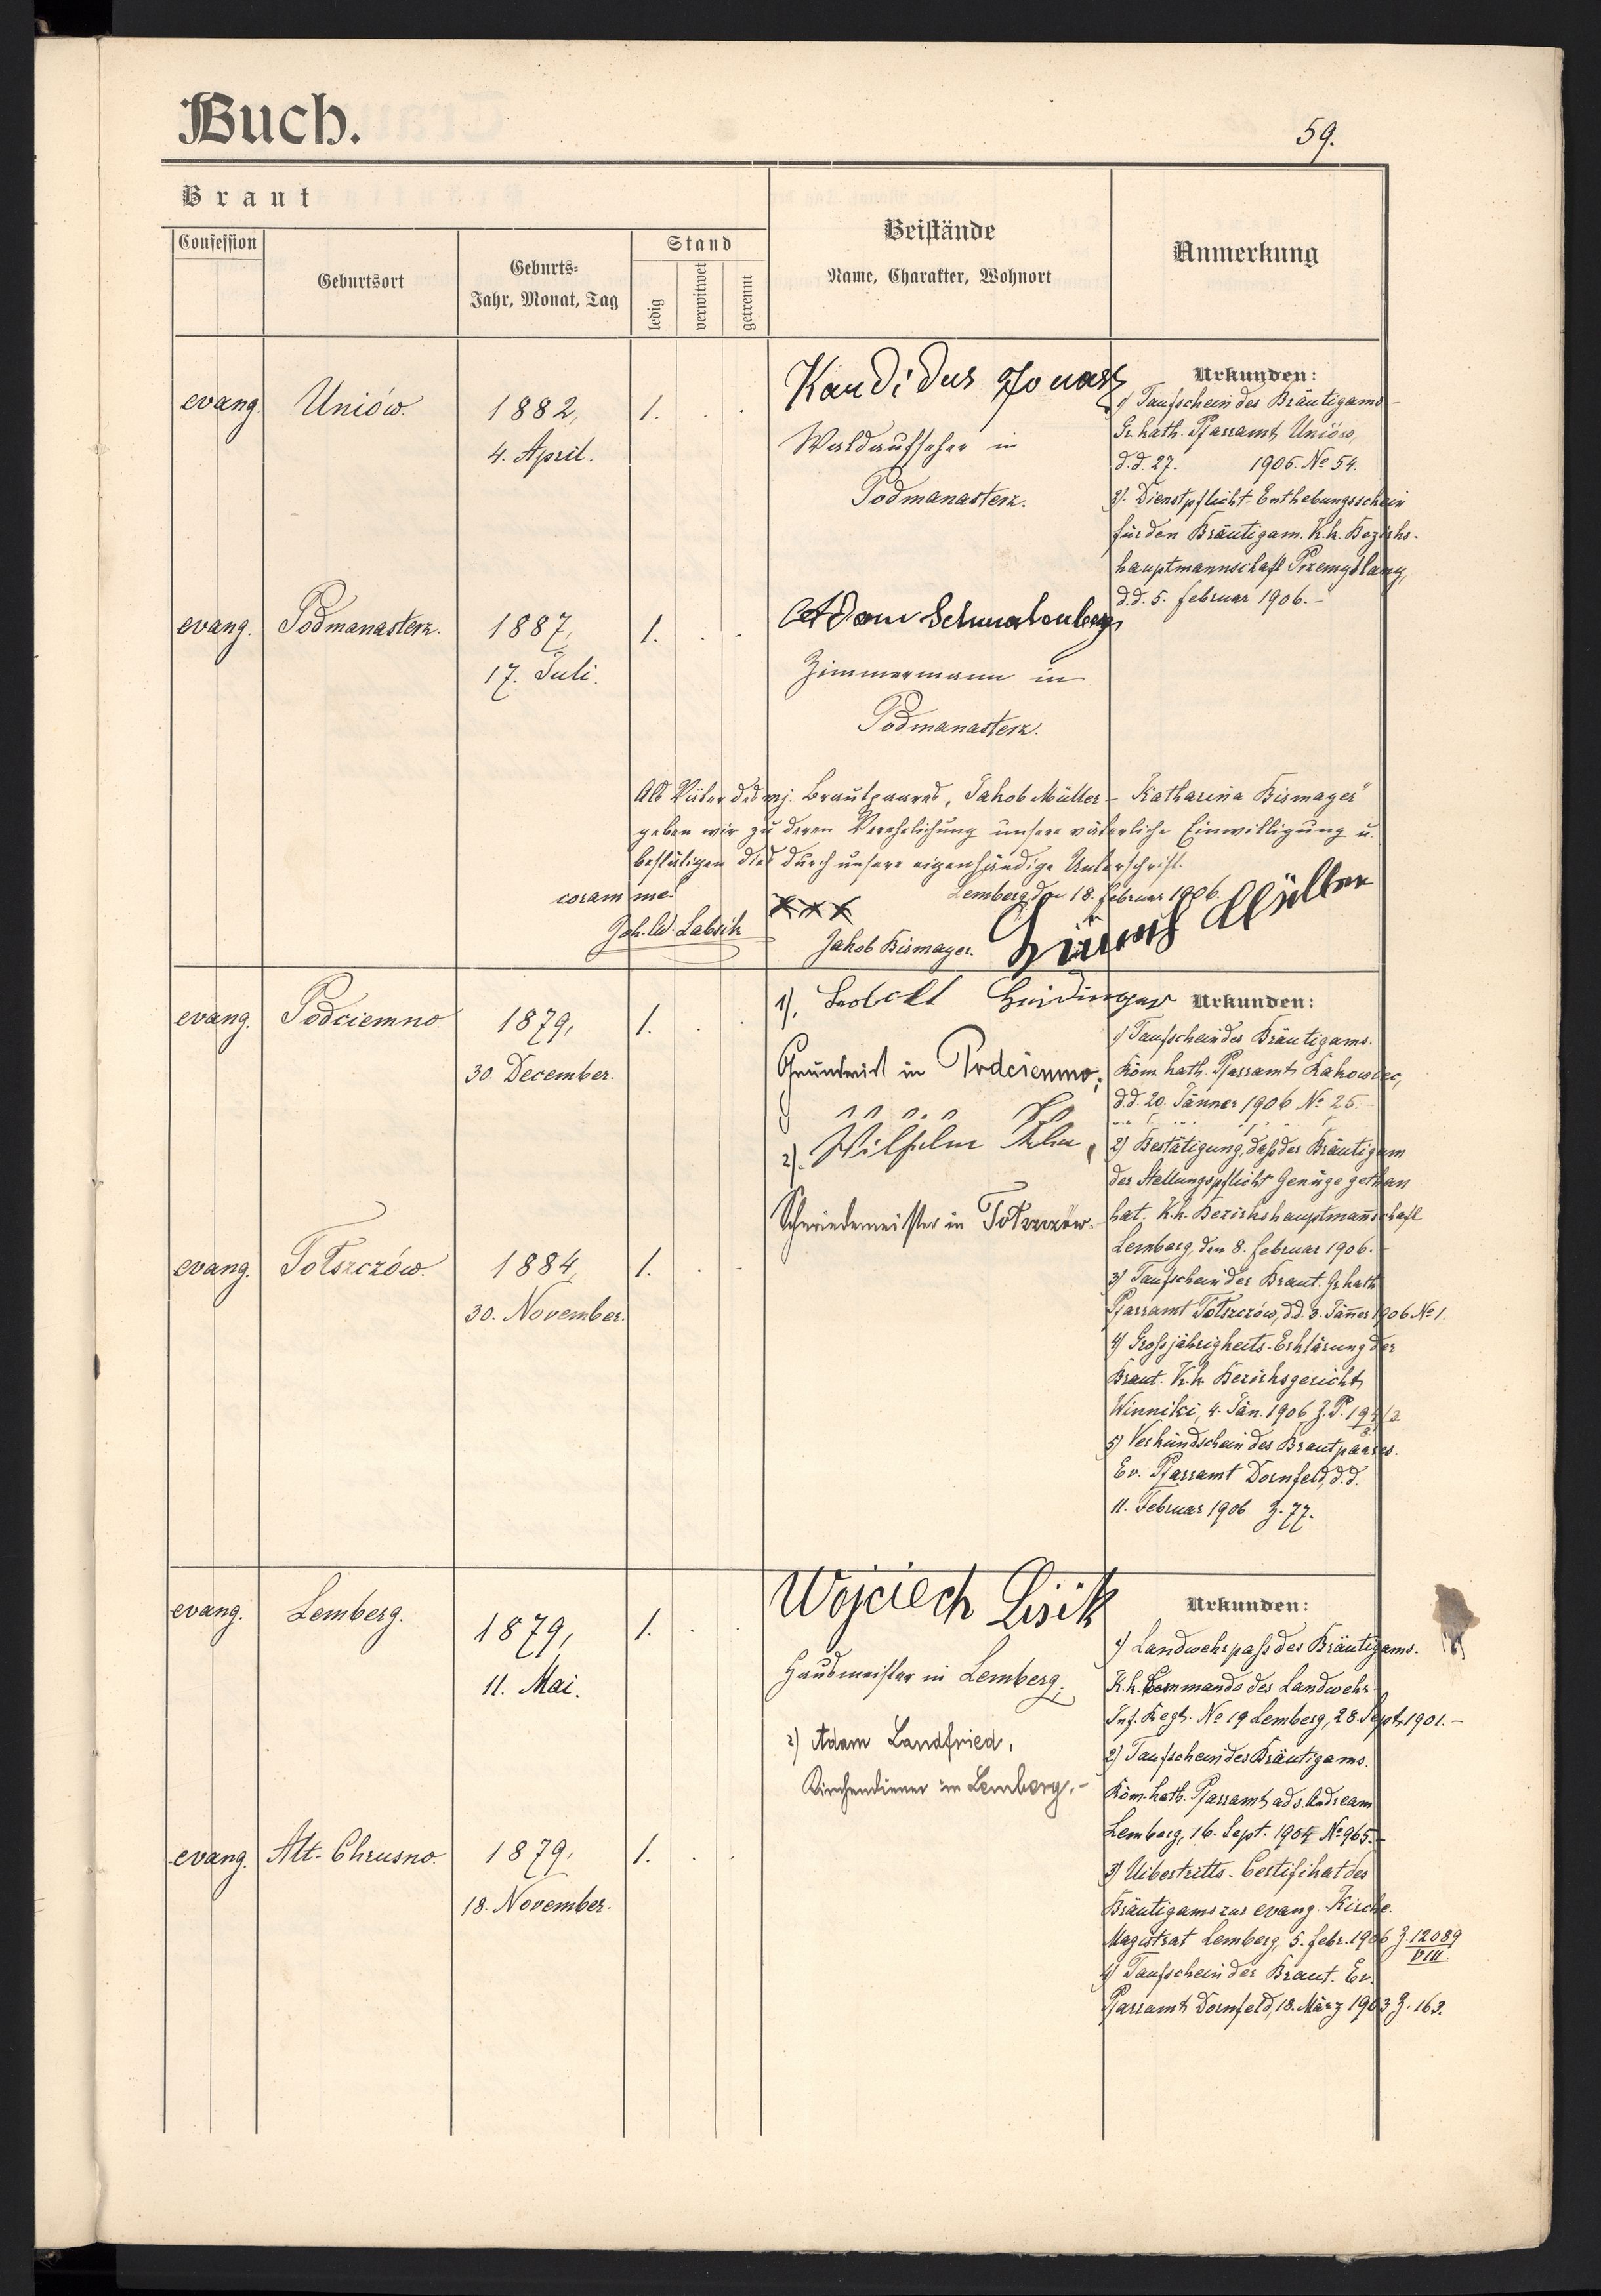 Buch.
59.
Braut
Beistände
Name, Charakter, Wohnort
Anmerkung
Confession
Geburtsort
Geburts-
Jahr, Monat, Tag
Stand
ledig
verwitwet
getrennt
evang. Uniów. 1882, 1. . .
4. April.
Kandidus Jonasz
Waldaufseher in
Podmanasterz.
Urkunden:
1) Taufschein des Bräutigams
Gr. kath. Pfarramt Uniów,
d.d. 27. 1905. No 54.
2). Dienstpflicht-Enthebungsschein
für den Bräutigam. K.k. Bezirks-
hauptmannschaft Przemyslany,
d.d. 5. Februar 1906.–
evang. Podmanasterz. 1887, 1. . .
17. Juli.
Adam Schmalenberg
Zimmermann in
Podmanasterz.
Als Väter des mj. Brautpaares, Jakob Müller – Katharina Bismayer"
geben wir zu deren Verehelichung unsere väterliche Einwilligung u.
bestätigen dies durch unsere eigenhändige Unterschrift.
coram me: Lemberg, den 18. Februar 1906.
XXX
Jakob Bismayer. Müller
evang. Podciemno. 1879, 1. . .
30. December.
1), Heidinger
Grundwirt in Podciemno;
2). Wilhelm
Schmiedemeister in Tołszczów.
Urkunden:
1) Taufschein des Bräutigams.
Röm. kath. Pfarramt Rakowiec,
d.d. 20. Jänner 1906 No 25.
2) Bestätigung, daß der Bräutigam
der Stellungspflicht Genüge gethan
hat. K.k. Bezirkshauptmannschaft
Lemberg, den 8. Februar 1906.–
3) Taufschein der Braut. Gr. kath.
Pfarramt Tołszczów, d.d. 3. Jänner 1906 No 1.
4) Großjährigkeits-Erklärung der
Braut. K.k. Bezirksgericht
Winniki, 4. Jän. 1906
5) Verkündschein des Brautpaares.
Ev. Pfarramt Dornfeld, d.d.
11. Februar 1906 Z. 77.
evang. Tołszczów. 1884, 1. . .
30. November.
evang. Lemberg. 1879, 1. . .
11. Mai.
Wojciech Lisik
Hausmeister in Lemberg;
2) Adam Landfried,
Kirchendiener in Lemberg.–
Urkunden:
1) Landwehrpaß des Bräutigams.
K.k. Commando des Landwehr
Inf. Regt. No 19 Lemberg, 28. Sept. 1901.–
2) Taufschein des Bräutigams.
Röm. kath. Pfarramt ad s. Andream
Lemberg, 16. Sept. 1904 No 965.–
3) Uibertritts-Certifikat des
Bräutigams zur evang. Kirche.
Magistrat Lemberg, 5. Febr. 1906 Z. 12089
VIII
4) Taufschein der Braut. Ev.
Pfarramt Dornfeld, 18. März 1903 Z. 163.
evang. Alt-Chrusno. 1879. 1. . .
18. November.